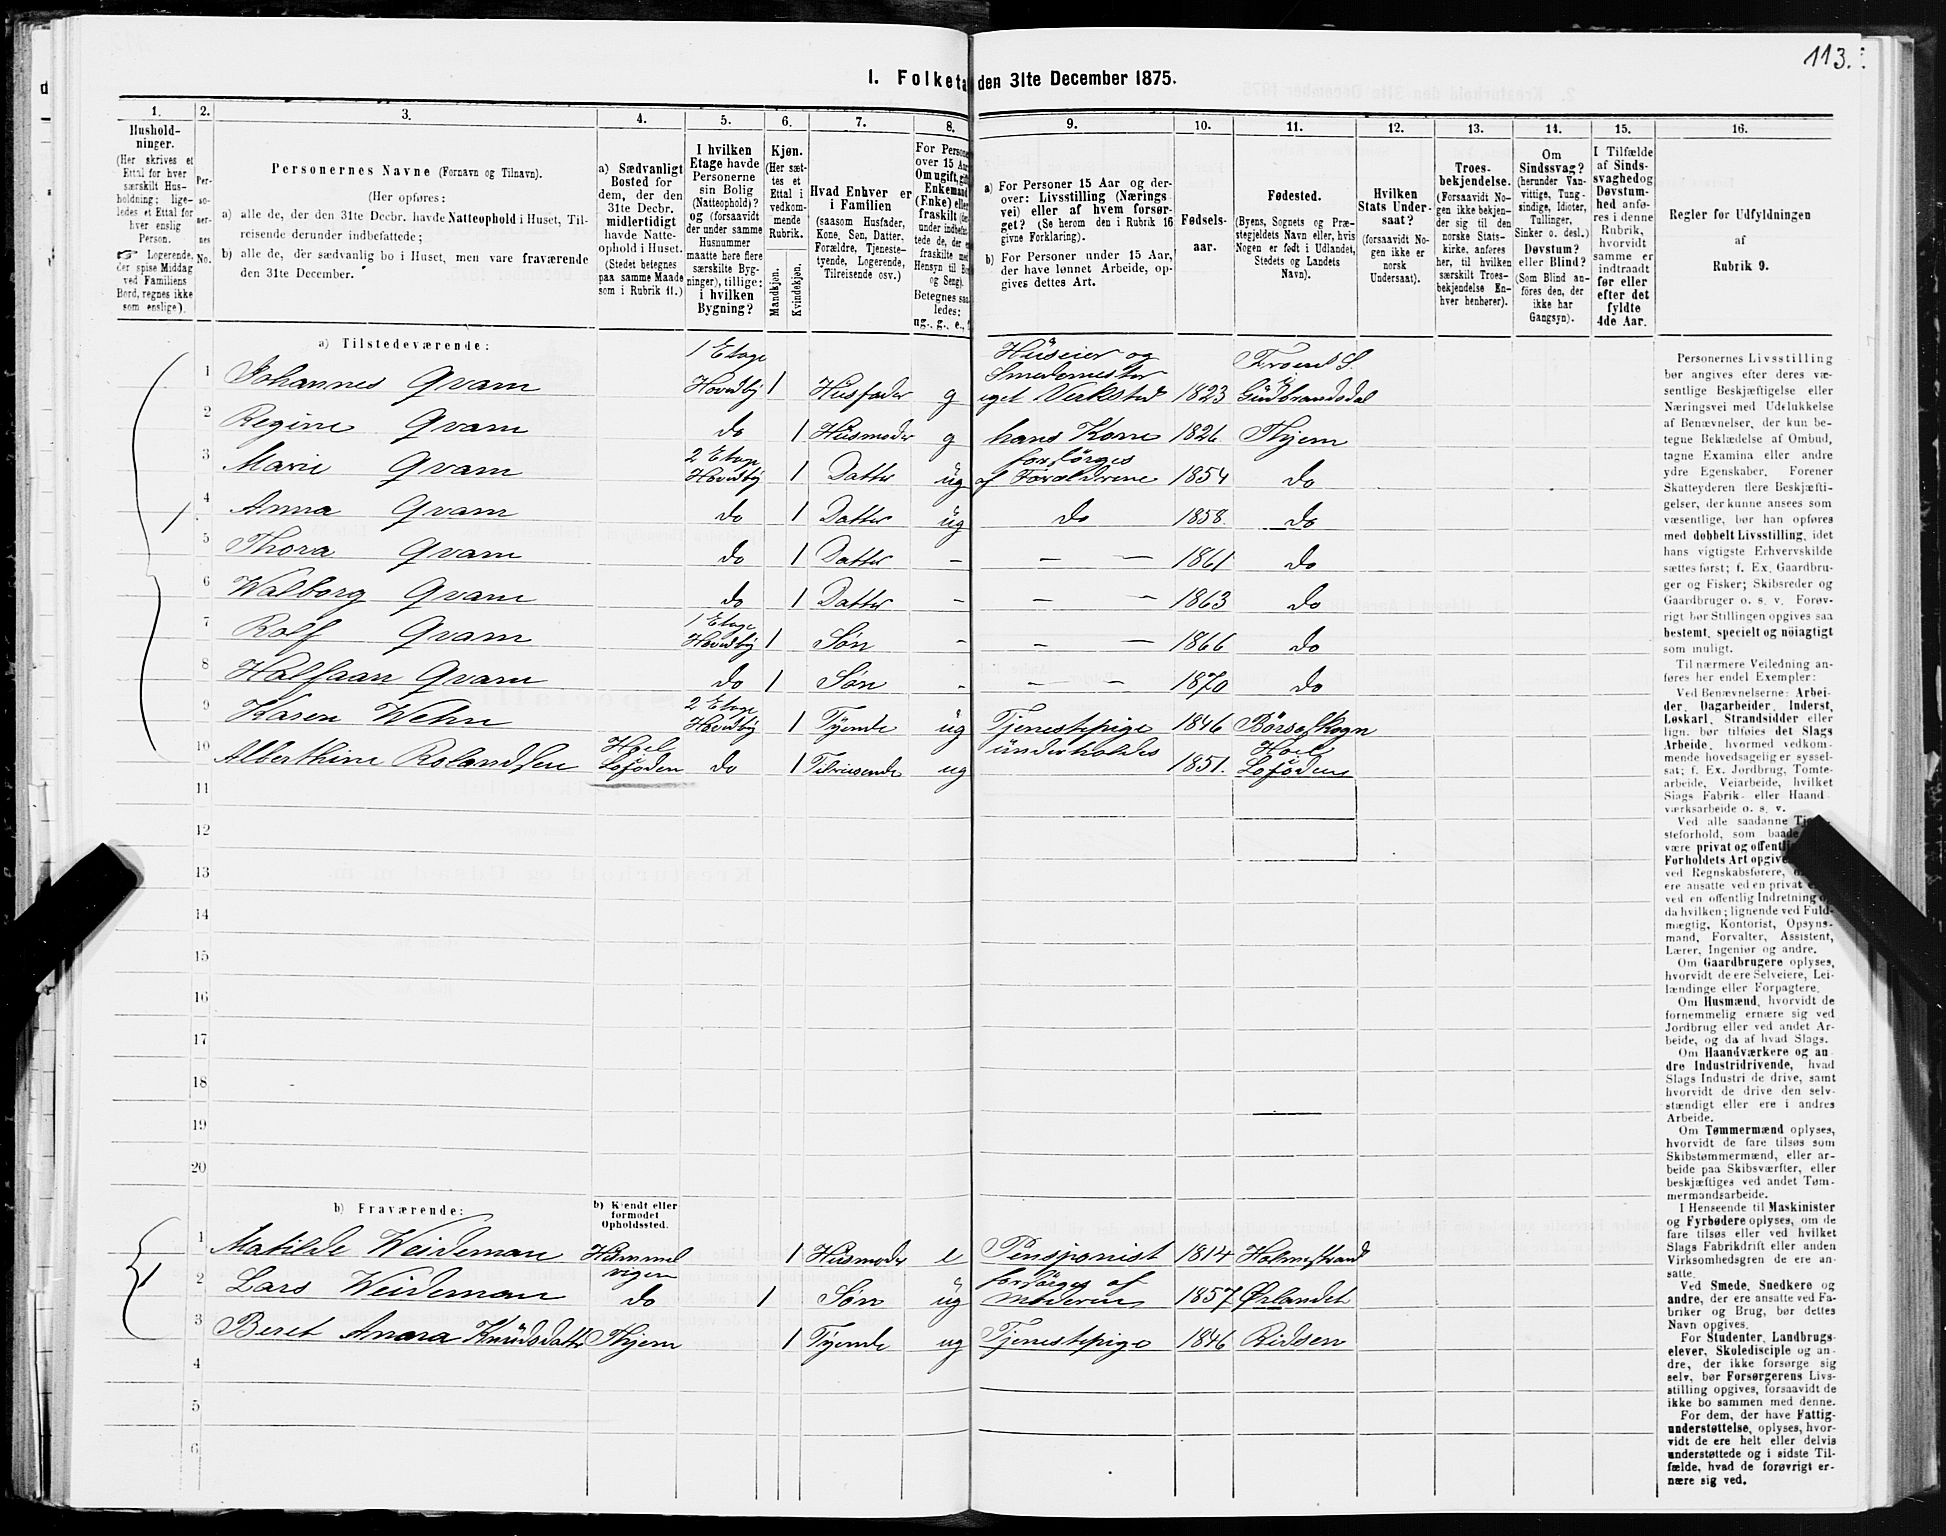 113.
1. Folketæ den 31te December 1875.
1. 2. 3. 4. 5. 6. 7. 8. 9. 10. 11. 12. 13. 14. 15. 16.
Hushold-
ninger.
(Her skrives et
Ettal for hver
særskilt Hus-
holdning; lige-
ledes et Ettal for
hver enslig
Person.
☞ Logerende,
der spise Middag
ved Familiens
Bord, regnes ikke
som enslige).
Per-
so-
ner-
nes
No.
Personernes Navne (Fornavn og Tilnavn).
(Her opføres:
a) alle de, der den 31te Decbr. havde Natteophold i Huset, Til-
reisende derunder indbefattede;
b) alle de, der sædvanlig bo i Huset, men vare fraværende
den 31te December.
a) Sædvanligt
Bosted for
dem, der den
31te Decbr.
midlertidigt
havde Natte-
ophold i Huset.
(Stedet betegnes
paa samme Maade
som i Rubrik 11.)
I hvilken
Etage havde
Personerne
sin Bolig
(Natteophold)?
og (forsaavidt
der under samme
Husnummer
maatte høre flere
særskilte Byg-
ninger), tillige:
i hvilken
Bygning?
Kjøn.
(Her sæt-
tes et
Ettal i
vedkom-
mende
Rubrik.
Mandkjøn.
Kvindekjøn.
Hvad Enhver er
i Familien
(saasom Husfader,
Kone, Søn, Datter,
Forældre, Tjeneste-
tyende, Logerende,
Tilreisende osv.)
For Persone
over 15 Aa
Om ugift, gif
Enkemand
(Enke) elle
fraskilt (der
under indbefat-
tede de, der e
fraskilte med
Hensyn til Bo
og Seng).
Betegnes saa
ledes:
ug., g., e.,
a) For Personer 15 Aar og der-
over: Livsstilling (Nærings
vei) eller af hvem forsør-
get? (Se herom den i Rubrik 16
givne Forklaring).
b) For Personer under 15 Aar,
der have lønnet Arbeide, op-
gives dettes Art.
Fødsels-
aar.
Fødested.
(Byens, Sognets og Præ-
stegjeldets Navn eller, hvis
Nogen er født i Udlandet,
Stedets og Landets
Navn).
Hvilken
Stats Under-
saat?
(forsaavidt No-
gen ikke er
norsk
Undersaat).
Troes-
bekjendelse.
(Forsaavidt No-
gen ikke bekjen-
der sig til den
norske Stats-
kirke, anføres
her, til hvilken
særskilt Troes-
bekjendelse En-
hver henhører).
Om
Sindssvag?
(herunder Van-
vittige, Tung-
sindige, Idioter,
Tullinger,
Sinker o. desl.)
Døvstum?
eller Blind?
(Som Blind an-
føres den, der
ikke har
Gangsyn).
I Tilfælde
af Sinds-
svaghed og
Døvstum-
hed anfø-
res i denne
Rubrik,
hvorvidt
samme er
indtraadt
før eller
efter det
fyldte
4de Aar.
Regler for Udfyldningen
af
Rubrik 9.
a) Tilstedeværende:
1 Johannes Qvam 1 Etage Hovedby 1 Husfader g Huseier og Smedemester eget Verksted 1823 Froens S. Gudbrandsdal
2 Regine Qvam do 1 Husmoder g hans Kone 1826 Thjem
3 Marie Qvam 2 Etage Hovedby 1 Datter ug forsörges af Forældrene 1854 do
4 Anna Qvam do 1 Datter ug do 1858 do
5 Thora Qvam do 1 Datter — — — 1861 do
6 Walborg Qvam do 1 Datter — — — 1863 do
7 Rolf Qvam 1 Etage Hovedby 1 Søn — — — 1866 do
8 Halfdan Qvam do 1 Søn - — — 1870 do
9 Karen Wehn 2 Etage Hovedby 1 Tyende ug Tjenestepige 1846 Börseskogn
10 Alberthine Rolandsen Hoel Lofoden do 1 Tilreisende ug underholdes 1851. Hoel Lofoden
11
12
13
14
15
16
17
18
19
20
b) Fraværende:
b) Kjendt eller
formodet
Opholdssted.
1 Matilde Weideman Hummelvigen 1 Husmoder e Pensjonist 1814 Holmestrand
2 Lars Weideman do 1 Søn ug forsörges af Moderen 1857 Ørlandet
3 Beret Anna Knudsdatter Thjem 1 Tyende ug Tjenestepige 1846 Ridsen
4
5
6
Personernes Livsstilling
bør angives efter deres væ-
sentlige Beskjæftigelse eller
Næringsvei med Udelukkelse
af Benævnelser, der kun be-
tegne Beklædelse af Ombud,
tagne Examina eller andre
ydre Egenskaber. Forener
Skatteyderen flere Beskjæfti-
gelser, der kunne ansees som
væsentlige, bør han opføres
med dobbelt Livsstilling, idet
hans vigtigste Erhvervskilde
sættes først; f. Ex. Gaardbru-
ger og Fisker; Skibsreder og
Gaardbruger o. s. v. Forøv-
rigt bør Stillingen opgives saa
bestemt, specielt og nøiagtigt
som muligt.
Til nærmere Veiledning an-
føres her endel Exempler:
Ved Benævnelserne: Arbei-
der, Dagarbeider, Inderst,
Løskarl, Strandsidder eller
lign. bør tilføies det Slags
Arbeide, hvormed vedkom-
mende hovedsagelig er syssel-
sat; f. Ex. Jordbrug, Tomte-
arbeide, Veiarbeide, hvilket
Slags Fabrik- eller Haand-
værksarbeide o. s. v.
Ved alle saadanne
steforhold, som baade
være privat og offentli
Forholdets Art opgive
ved Regnskabsførere,
ere ansatte ved en privat
ved en offentlig Indretning
da hvilken; lignende ved Fuld-
mægtig, Kontorist, Opsyns-
mand, Forvalter, Assistent,
Lærer, Ingeniør og andre.
Om Gaardbrugere oplyses,
hvorvidt de ere Selveiere, Lei-
lændinge eller Forpagtere.
Om Husmænd, hvorvidt de
fornemmelig ernære sig ved
Jordbrug eller ved andet Ar-
beide, og da af hvad Slags.
Om Haandværkere og an-
dre Industridrivende, hvad
Slags Industri de drive, samt
hvorvidt de drive den selv-
stændigt eller ere i andres
Arbeide.
Om Tømmermænd oplyses,
hvorvidt de fare tilsøs som
Skibstømmermænd, eller ar-
beide paa Skibsværfter, eller
beskjæftiges ved andet Tøm-
mermandsarbeide.
I Henseende til Maskinister
og Fyrbødere oplyses, om de
fare tilsøs eller ved hvilket
Slags Fabrikdrift eller anden
Virksomhedsgren de ere an-
satte.
Ved Smede, Snedkere og
andre, der ere ansatte ved Fa-
briker og Brug, bør dettes
Navn opgives.
For Studenter, Landbrugs-
elever, Skoledisciple og an-
dre, der ikke forsørge sig
selv, bør Forsørgerens Livs-
stilling opgives, forsaavidt de
ikke bo sammen med denne.
For dem, der have Fattig-
understøttelse, oplyses, hvor-
vidt de ere helt eller delvis
understøttede og i sidste Til-
fælde, hvad de forøvrigt er-
nære sig ved.